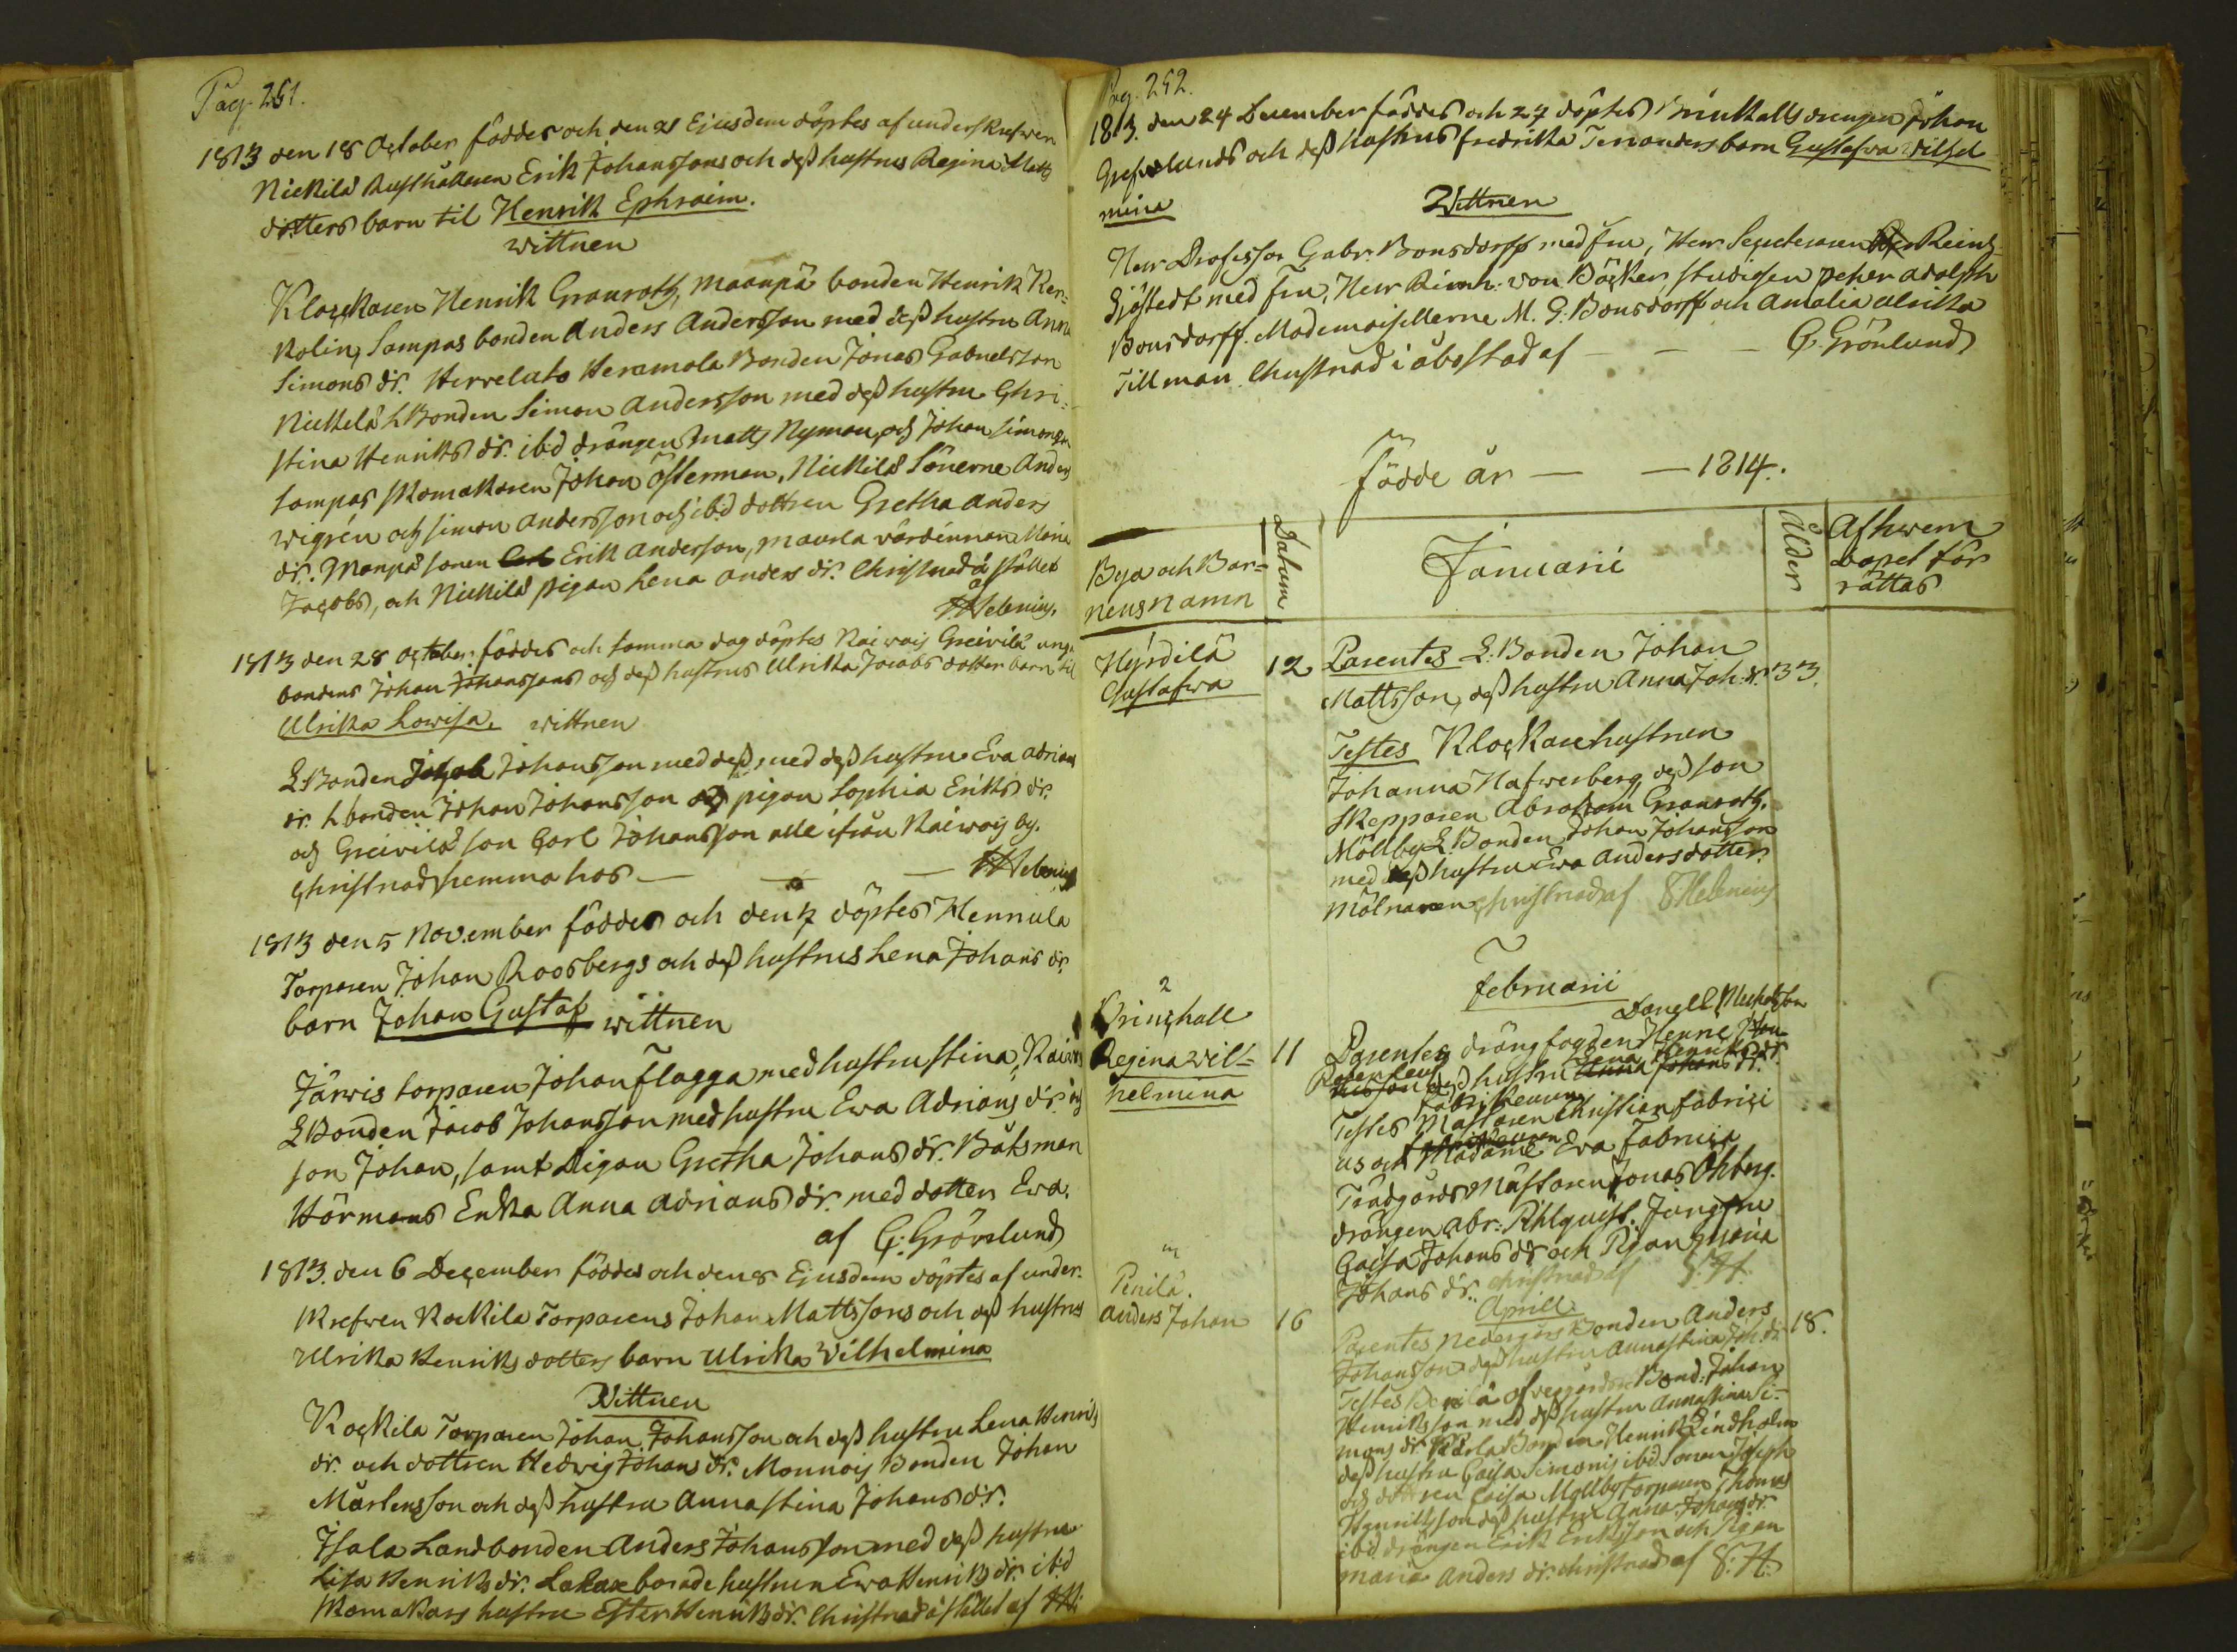 Pag. 251.
1813 den 18 October föddes och den 21 Ejusdem döptes af underskrefwen
Nickilä Rusthållaren Erik Johanssons och deß hustrus Regina Matts
dotters barn til Henrik Ephraim.
wittnen
Klockaren Henrik Granroth, Maanpä bonden Henrik Ker=
kolin, Lampas bonden Anders Andersson med deß hustru Anna
Simons dr. Hervelato Heramola Bonden Jonas Gabrielsson
Nickilä L Bonden Simon Andersson med deß hustru Chri=
stina Henriks dr. ibd drängen Matts Nyman, och Johan Simonson
Lampas skomakaren Johan Österman, Nickilä Sönerne Anders
Wigrén och Simon Andersson och ibd dottren Gretha Anders
dr. Manpä sonen Erik Andersson, Maarla värdinnan Maria
Jacobs, och Nickilä pigan Lena Anders dr. Christnad å stället
af Helenius.
1813 den 28 October föddes och samma dag döptes Raiwois Greivilä unge
bondens Johan Johanssons och deß hustrus Ulrika Jacobs dotter barn til
Ulrika Lowisa. wittnen
L Bonden Jacob Johansson med deß, med deß hustru Eva Adrians
dr. L bonden Johan Johansson och pigan Sophia Eriks dr.
och Greivilä son Carl Johansson alle ifrån Raiwois by.
Christnad hemma hos — — — Helenius
1813 den 5 November föddes och den 7 döptes Hennula
Torparen Johan Roosbergs och deß hustrus Lena Johans dr.
barn Johan Gustaf wittnen
Järvis torparen Johan Flagga med hustru Stina, Raiwois
L Bonden Jacob Johansson med hustru Ewa Adrians dr. och
son Johan, samt Pigan Gretha Johans dr. Båtsman
Hörmans Enka Anna Adrians dr. med dotter Ewa.
af G: Grönlund
1813. den 6 December föddes och den 8 Ejusdem döptes af under:
skrefwen Kockila Torparens Johan Mattssons och deß hustrus
Ulrika Henriks dotters barn Ulrika Vilhelmina
Wittnen
Kockila Torparen Johan Johansson och deß hustru Lena Henriks
dr. och dottren Hedwig Johans dr. Monnois Bonden Johan
Mårtensson och deß hustru Anna Stina Johans dr.
Isala Landbonden Anders Johansson med deß hustru
Lisa Henriks dr. boende hustrun Ewa Henriks dr. ibd
Skomakars hustru Ester Henriks dr. Christnad å stället af
Pag. 252.
1813. den 24 December föddes och 27 döptes Brinkalls drengen Johan
Grefvelunds och deß hustrus Fredrika Ternanders barn Gustafwa Wilhel
mina
Wittnen
Herr Professor Gabr: Bonsdorff med fru, Herr Secreteraren Reinh
Sjöstedt med fru, Herr Reinh: von Böcker, studiosen Peter Adolph
Bonsdorff. Mademoisellerne M. G: Bonsdorff och Amalia Ulrika
Tillman. Christnad i åbo stad af — — — G. Grönlund
Födde år — — 1814.
Bya och Bar=
nens Namn
Datum
Januarii
Ålder
Af hwem
dopet för
rättas
Hyrdilä
Gustafwa
12
Parentes L. Bonden Johan
Mattsson, deß hustru Anna Joh: dr. 33.
Testes Klockarehustrun
Johanna Hafwerberg, deß son
Skepparen Abraham Granroth.
Möllby L. Bonden Johan Johansson
med deß hustru Ewa Andersdotter.
Mölnaren, christnad af S Helenius
Februarii
2
Brinckall
Regina Wil=
helmina
11
Parentes drängfogden
deß hustru Lena Henriks dr.
Testes Mästaren Christian Fabrici
us och Madame Eva Fabricia
Trädgårds Mästaren Jonas Ohberg.
drängen Abr: Pihlquist. Jungfru
Caisa Johans dr och Pigan Maria
Johans dr. christnad af S. H.
Aprill.
m
Penilä.
Anders Johan
16
Parentes Nedergårds Bonden Anders
Johansson deß hustru Annastina Joh. dr. 18.
Testes Penilä ofvergårds Bond: Johan
Henriksson med deß hustru Annastina Si=
mons dr. Kärla Bonden Henrik Lindholm
deß hustru Caisa Simons ibd sonen Joseph
och dottren Caisa Möllby torparen Thomas
Henriksson deß hustru Anna Johans dr.
ibd drängen Erik Eriksson och Pigan
Maria Anders dr. christnad af S. H.